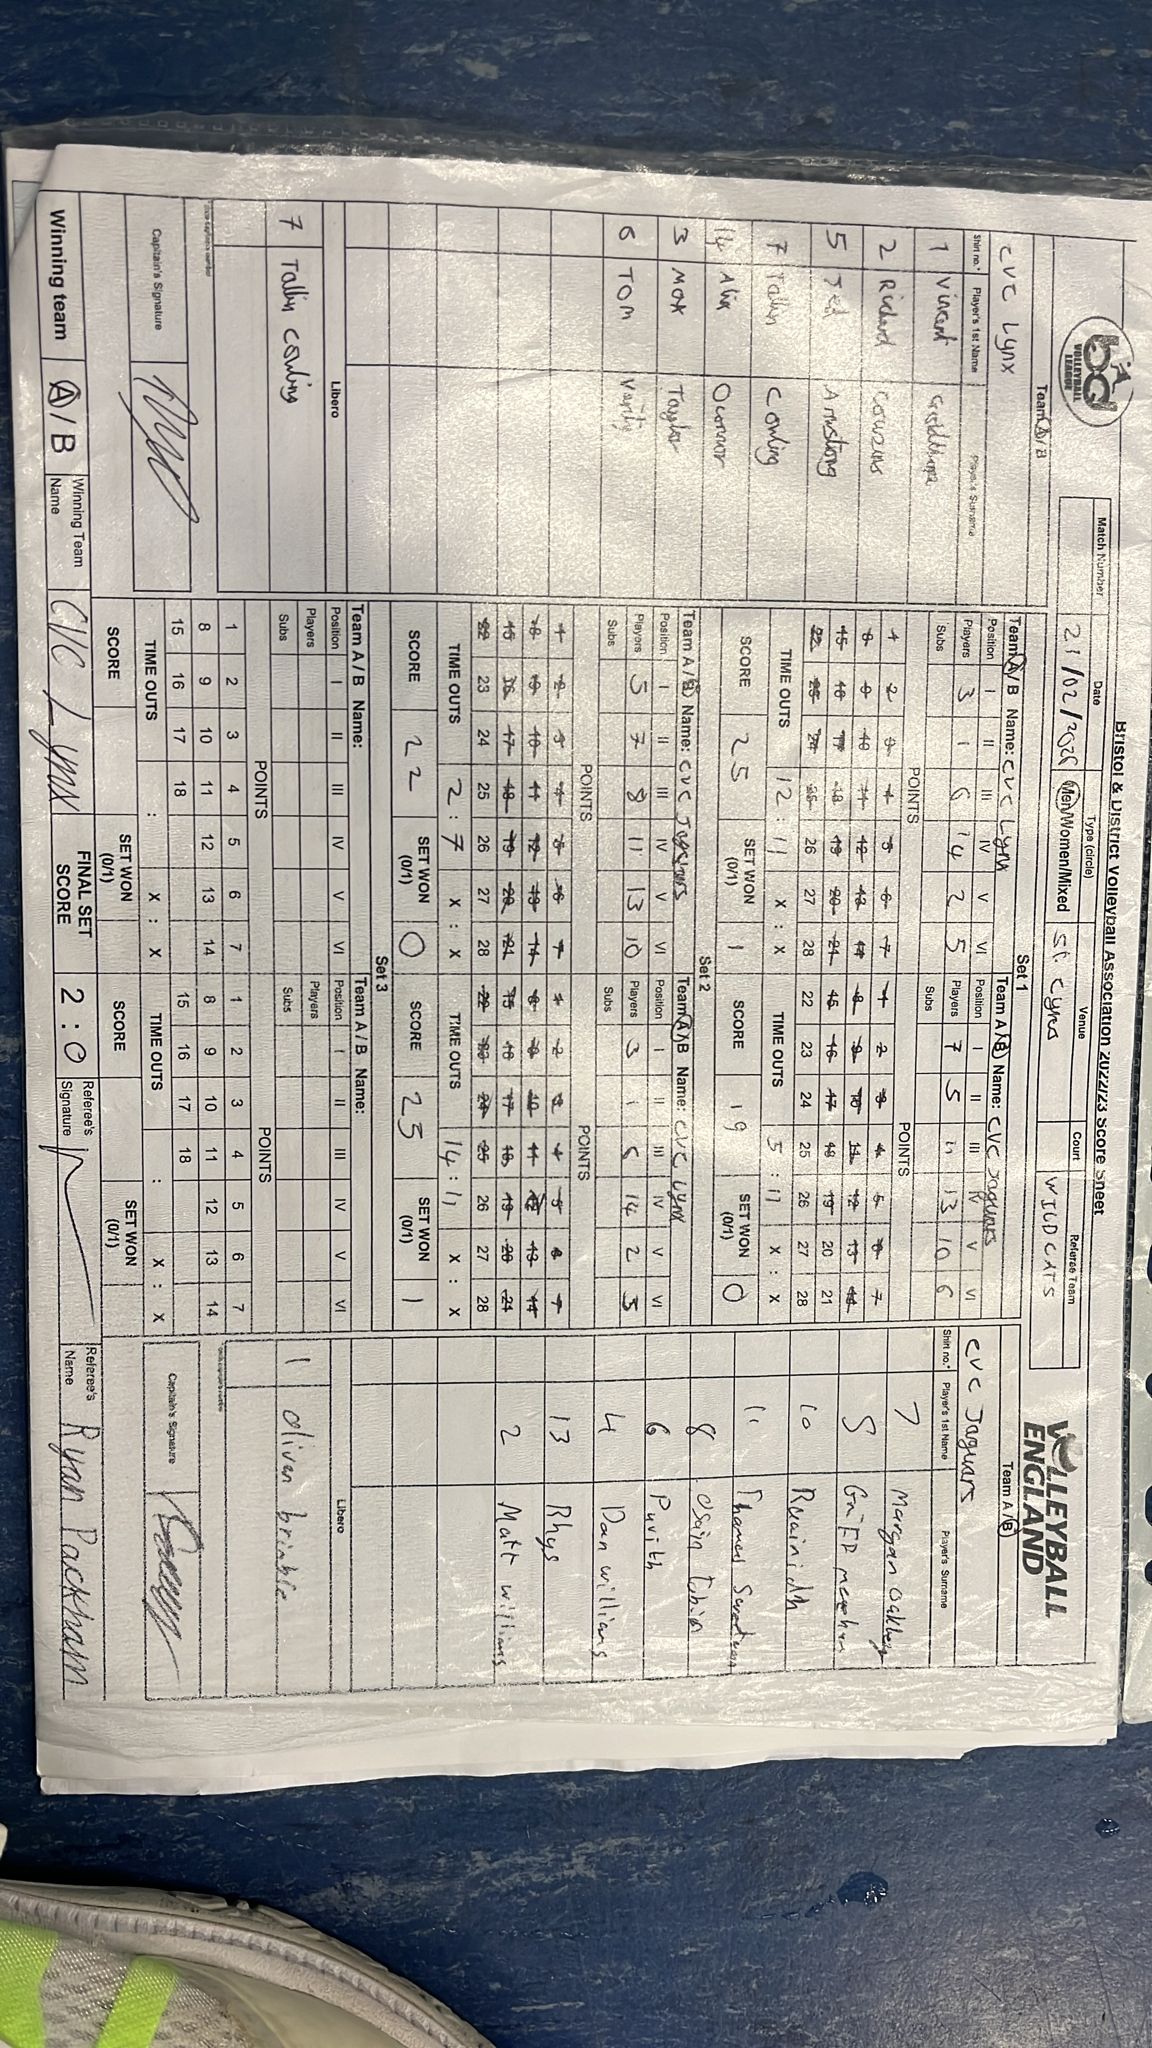 Bristol & District Volleyball Association 2022/23 Score Sheet
BD VOLLEYBALL LEAGUE
VOLLEYBALL ENGLAND
Match Number Date Type (circle) Venue Court Referee Team
Men/Women/Mixed St. Cyres WILDCATS
Team A/B
CVC Lynx
Shirt no.* Player's 1st Name Player's Surname
1 Vincent
2 Richard Couzens
5 Ted Armstrong
7 Tallin Cowling
14 Alix Oconnor
3 Max Taylor
6 TOM Verity
Libero
7 Tallin Cowling
Captain's Signature
Set 1
Team A/B Name: CVC Lynx
Position I II III IV V VI
Players 3 1 6 14 2 5
Subs
POINTS
1 2 3 4 5 6 7
8 9 10 11 12 13 14
15 16 17 18 19 20 21
22 23 24 25 26 27 28
TIME OUTS 12 : 11 X : X
SCORE 25 SET WON (0/1) 1
Team A/B Name: CVC Jaguars
Position I II III IV V VI
Players 7 5 11 13 10 6
Subs
POINTS
1 2 3 4 5 6 7
8 9 10 11 12 13 14
15 16 17 18 19 20 21
22 23 24 25 26 27 28
TIME OUTS 5 : 11 X : X
SCORE 19 SET WON (0/1) 0
Set 2
Team A/B Name: CVC Jaguars
Position I II III IV V VI
Players 5 7 8 11 13 10
Subs
POINTS
1 2 3 4 5 6 7
8 9 10 11 12 13 14
15 16 17 18 19 20 21
22 23 24 25 26 27 28
TIME OUTS 2 : 7 X : X
SCORE 22 SET WON (0/1) 0
Team A/B Name: CVC Lynx
Position I II III IV V VI
Players 3 1 14 2
Subs
POINTS
1 2 3 4 5 6 7
8 9 10 11 12 13 14
15 16 17 18 19 20 21
22 23 24 25 26 27 28
TIME OUTS 14 : 11 X : X
SCORE 25 SET WON (0/1) 1
Set 3
Team A/B Name:
Position I II III IV V VI
Players
Subs
POINTS
1 2 3 4 5 6 7
8 9 10 11 12 13 14
15 16 17 18
TIME OUTS : X : X
SCORE SET WON (0/1)
Team A/B Name:
Position I II III IV V VI
Players
Subs
POINTS
1 2 3 4 5 6 7
8 9 10 11 12 13 14
15 16 17 18
TIME OUTS : X : X
SCORE SET WON (0/1)
Team A/B
CVC Jaguars
Shirt no.* Player's 1st Name Player's Surname
7 Morgan
5
10
11 Thomas
8
6 Purith
4 Dan williams
13 Rhys
2 Matt williams
Libero
1 oliver
Captain's Signature
Winning team A/B Winning Team Name CVC Lynx FINAL SET SCORE 2 : 0 Referee's Signature Referee's Name Ryan Packham